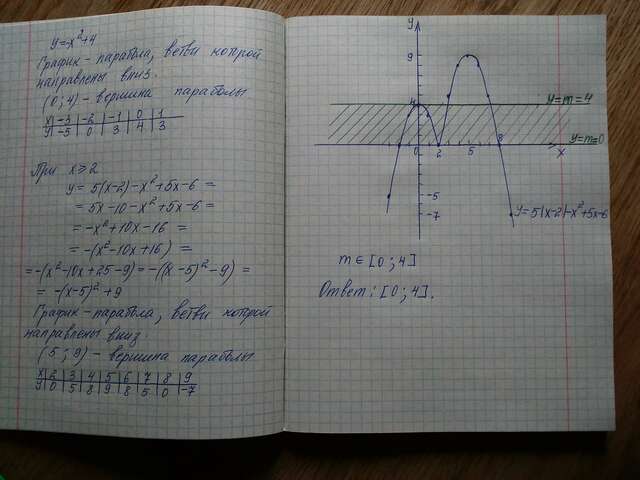 y=-x²+4
График - парабола, ветви которой
направлены вниз.
(0;4) - вершина параболы
x -3 -2 -1 0 1
y -5 0 3 4 3
При x⩾2
y = 5(x-2)-x²+5x-6 =
= 5x-10-x²+5x-6 =
= -x²+10x-16 =
= -(x²-10x+16) =
= -(x²-10x+25-9) = -((x-5)²-9) =
= -(x-5)²+9
График - парабола, ветви которой
направлены вниз.
(5;9) - вершина параболы
x 2 3 4 5 6 7 8 9
y 0 5 8 9 8 5 0 -7
y
9
4
y=m=4
y=m=0
0 2 5 8 x
-5
-7
y=5(x-2)-x²+5x-6
m∈[0;4]
Ответ: [0;4].